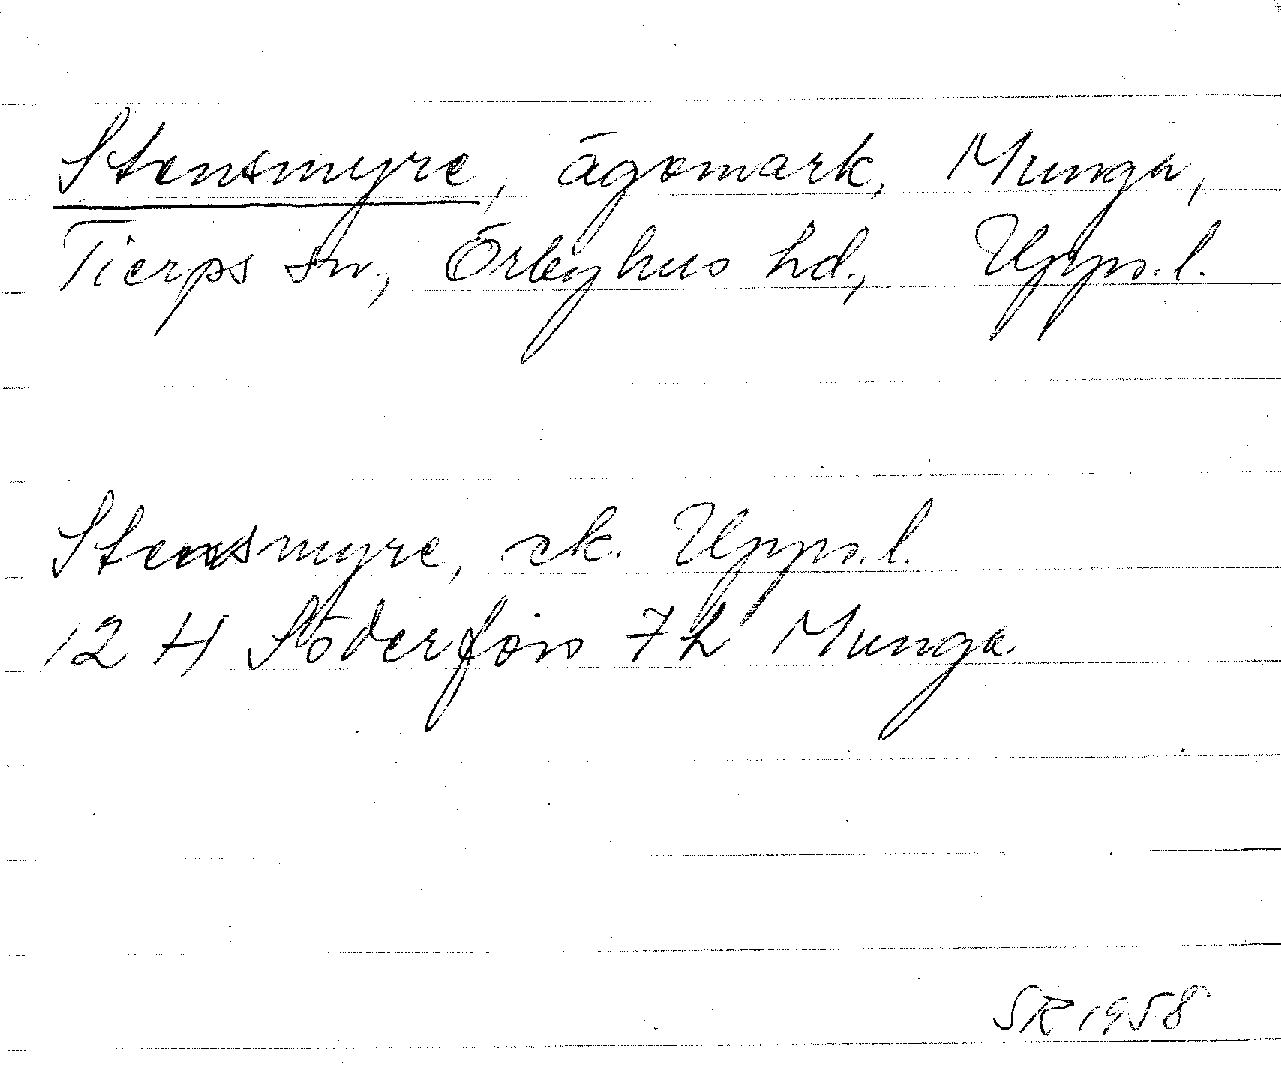 Stensmyre, ägomark, Munga,
Tierps sn, Örbyhus hd., Upps.l.
Stensmyre, ek. Upps.l.
12 H Söderfors 7h Munga
SR 1958